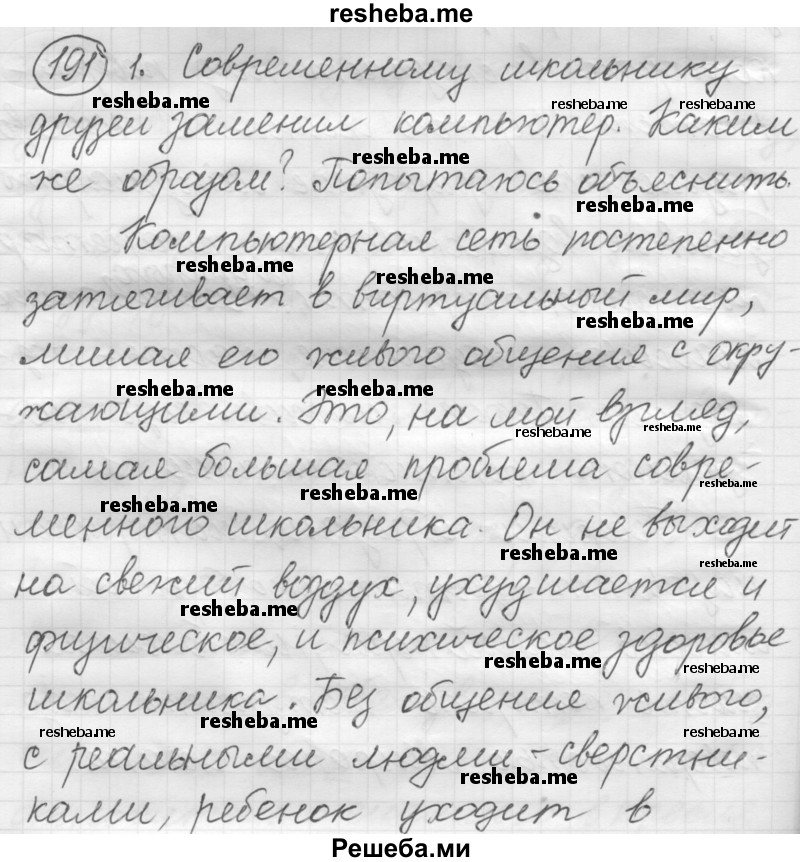 resheba.me
191 1. Современному школьнику
resheba.me resheba.me resheba.me
друзей заменил компьютер. Каким
resheba.me
же образом? Попытаюсь объяснить.
resheba.me
Компьютерная сеть постепенно
resheba.me resheba.me
затягивает в виртуальный мир,
resheba.me
лишая его живого общения с окру-
resheba.me resheba.me
жающими. Это, на мой взгляд,
resheba.me resheba.me
самая большая проблема совре-
resheba.me resheba.me resheba.me
менного школьника. Он не выходит
resheba.me resheba.me
на свежий воздух, ухудшается и
resheba.me
физическое, и психическое здоровье
resheba.me resheba.me
школьника. Без общения живого,
resheba.me resheba.me resheba.me
с реальными людми - сверстни-
resheba.me
ками, ребенок уходит в
Решеба.ми